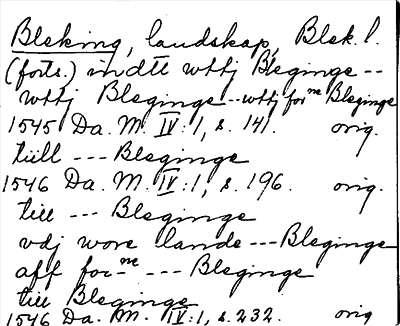 Bleking, landskap, Blek. l.
(forts.) indtt wttj Bleginge --
wttj Bleginge -- wttj for ne Bleginge
1545 Da. M. IV:1, s. 141. orig.
tiill --- Bleginge
1546 Da. M. IV:1, s. 196. orig.
till --- Bleginge
vdj wore lande --- Bleginge
aff for ne --- Bleginge
till Bleginge
1546 Da. M. IV:1, s. 232. orig